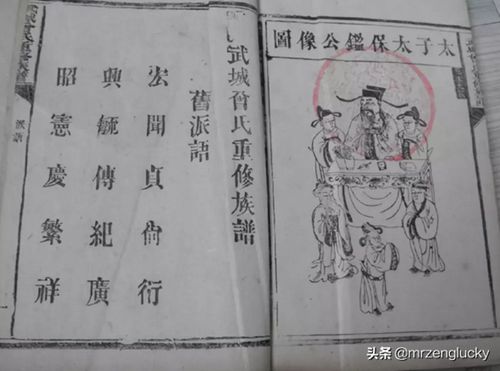 太子太保鑑公像圖
武城曾氏重修族譜
舊派語
宏聞貞尚衍
興毓傳紀廣
昭憲慶繁祥
派語
头条 @mrzenglucky